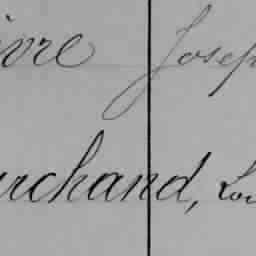 ivre Joseph
urchand, Lou